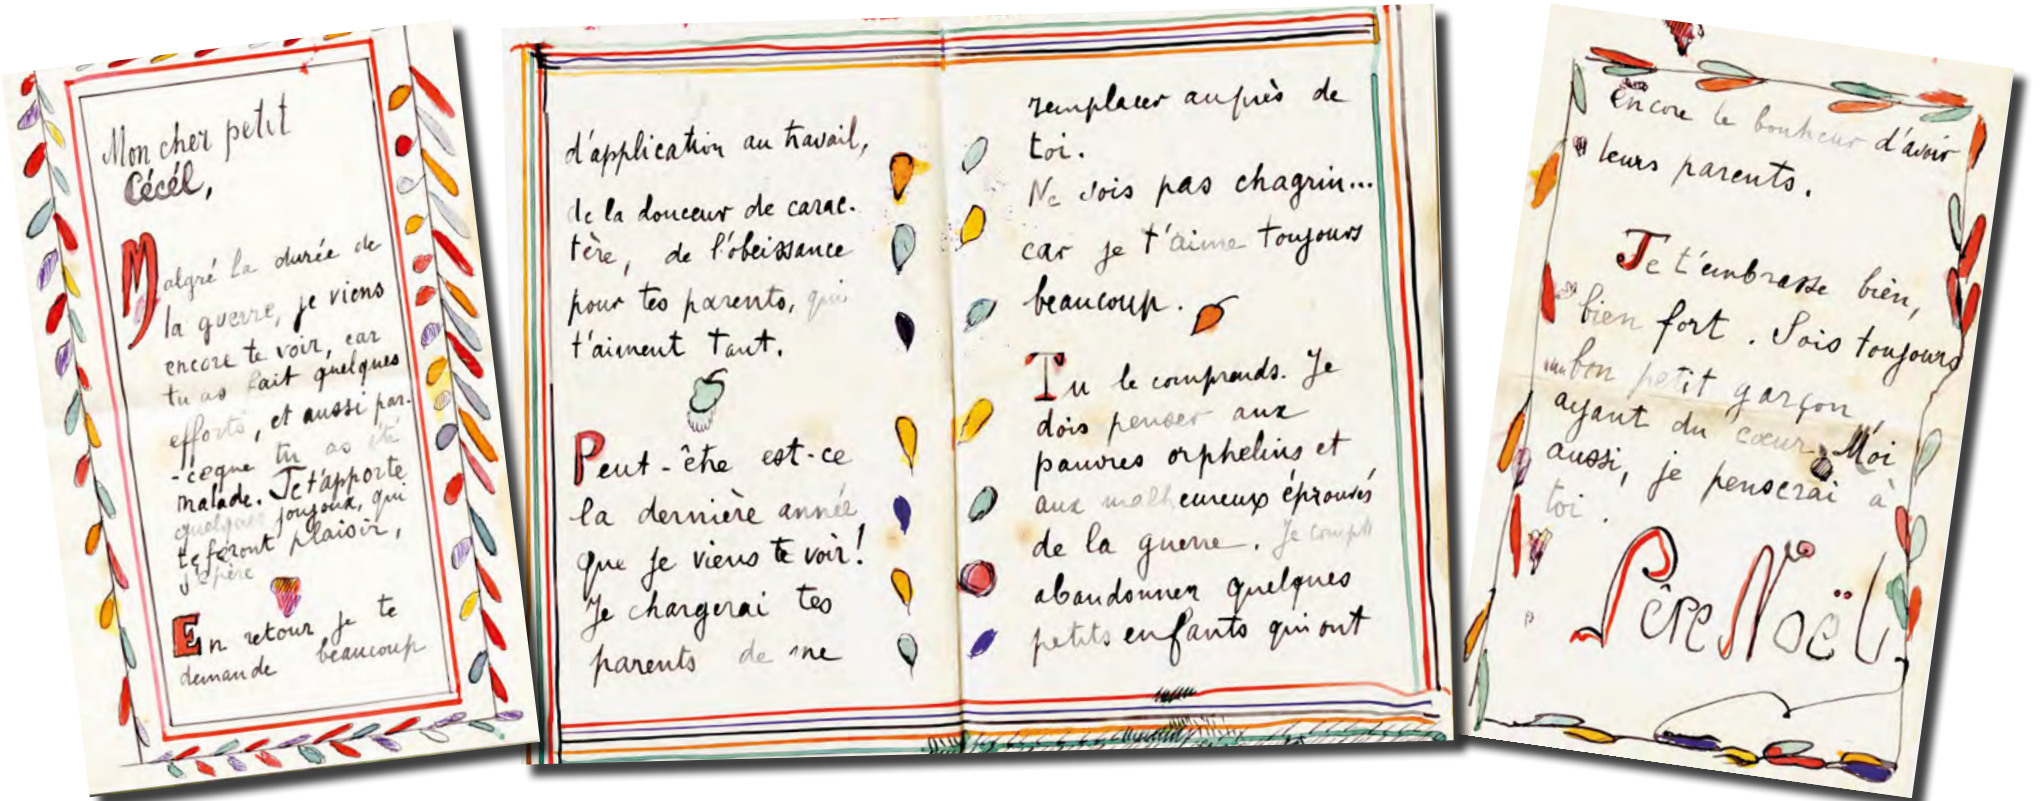 Mon cher petit
Cécél,
Malgré la durée de
la guerre, je viens
encore te voir, car
tu as fait quelques
efforts, et aussi par-
-ceque tu as été
malade. Je t'apporte
quelques joujoux, qui
te feront plaisir,
j'espère
En retour je te
demande beaucoup
d'application au travail,
de la douceur de carac-
tère, de l'obéissance
pour tes parents, qui
t'aiment tant.
Peut-être est-ce
la dernière année
que je viens te voir!
Je chargerai tes
parents de me
remplacer auprès de
toi.
Ne sois pas chagrin...
car je t'aime toujours
beaucoup.
Tu le comprends. Je
dois penser aux
pauvres orphelins et
aux malheureux éprouvés
de la guerre. Je compte
abandonner quelques
petits enfants qui ont
encore le bonheur d'avoir
leurs parents.
Je t'embrasse bien,
bien fort. Sois toujours
un bon petit garçon,
ayant du cœur. Moi
aussi, je penserai à
toi.
Père Noël.